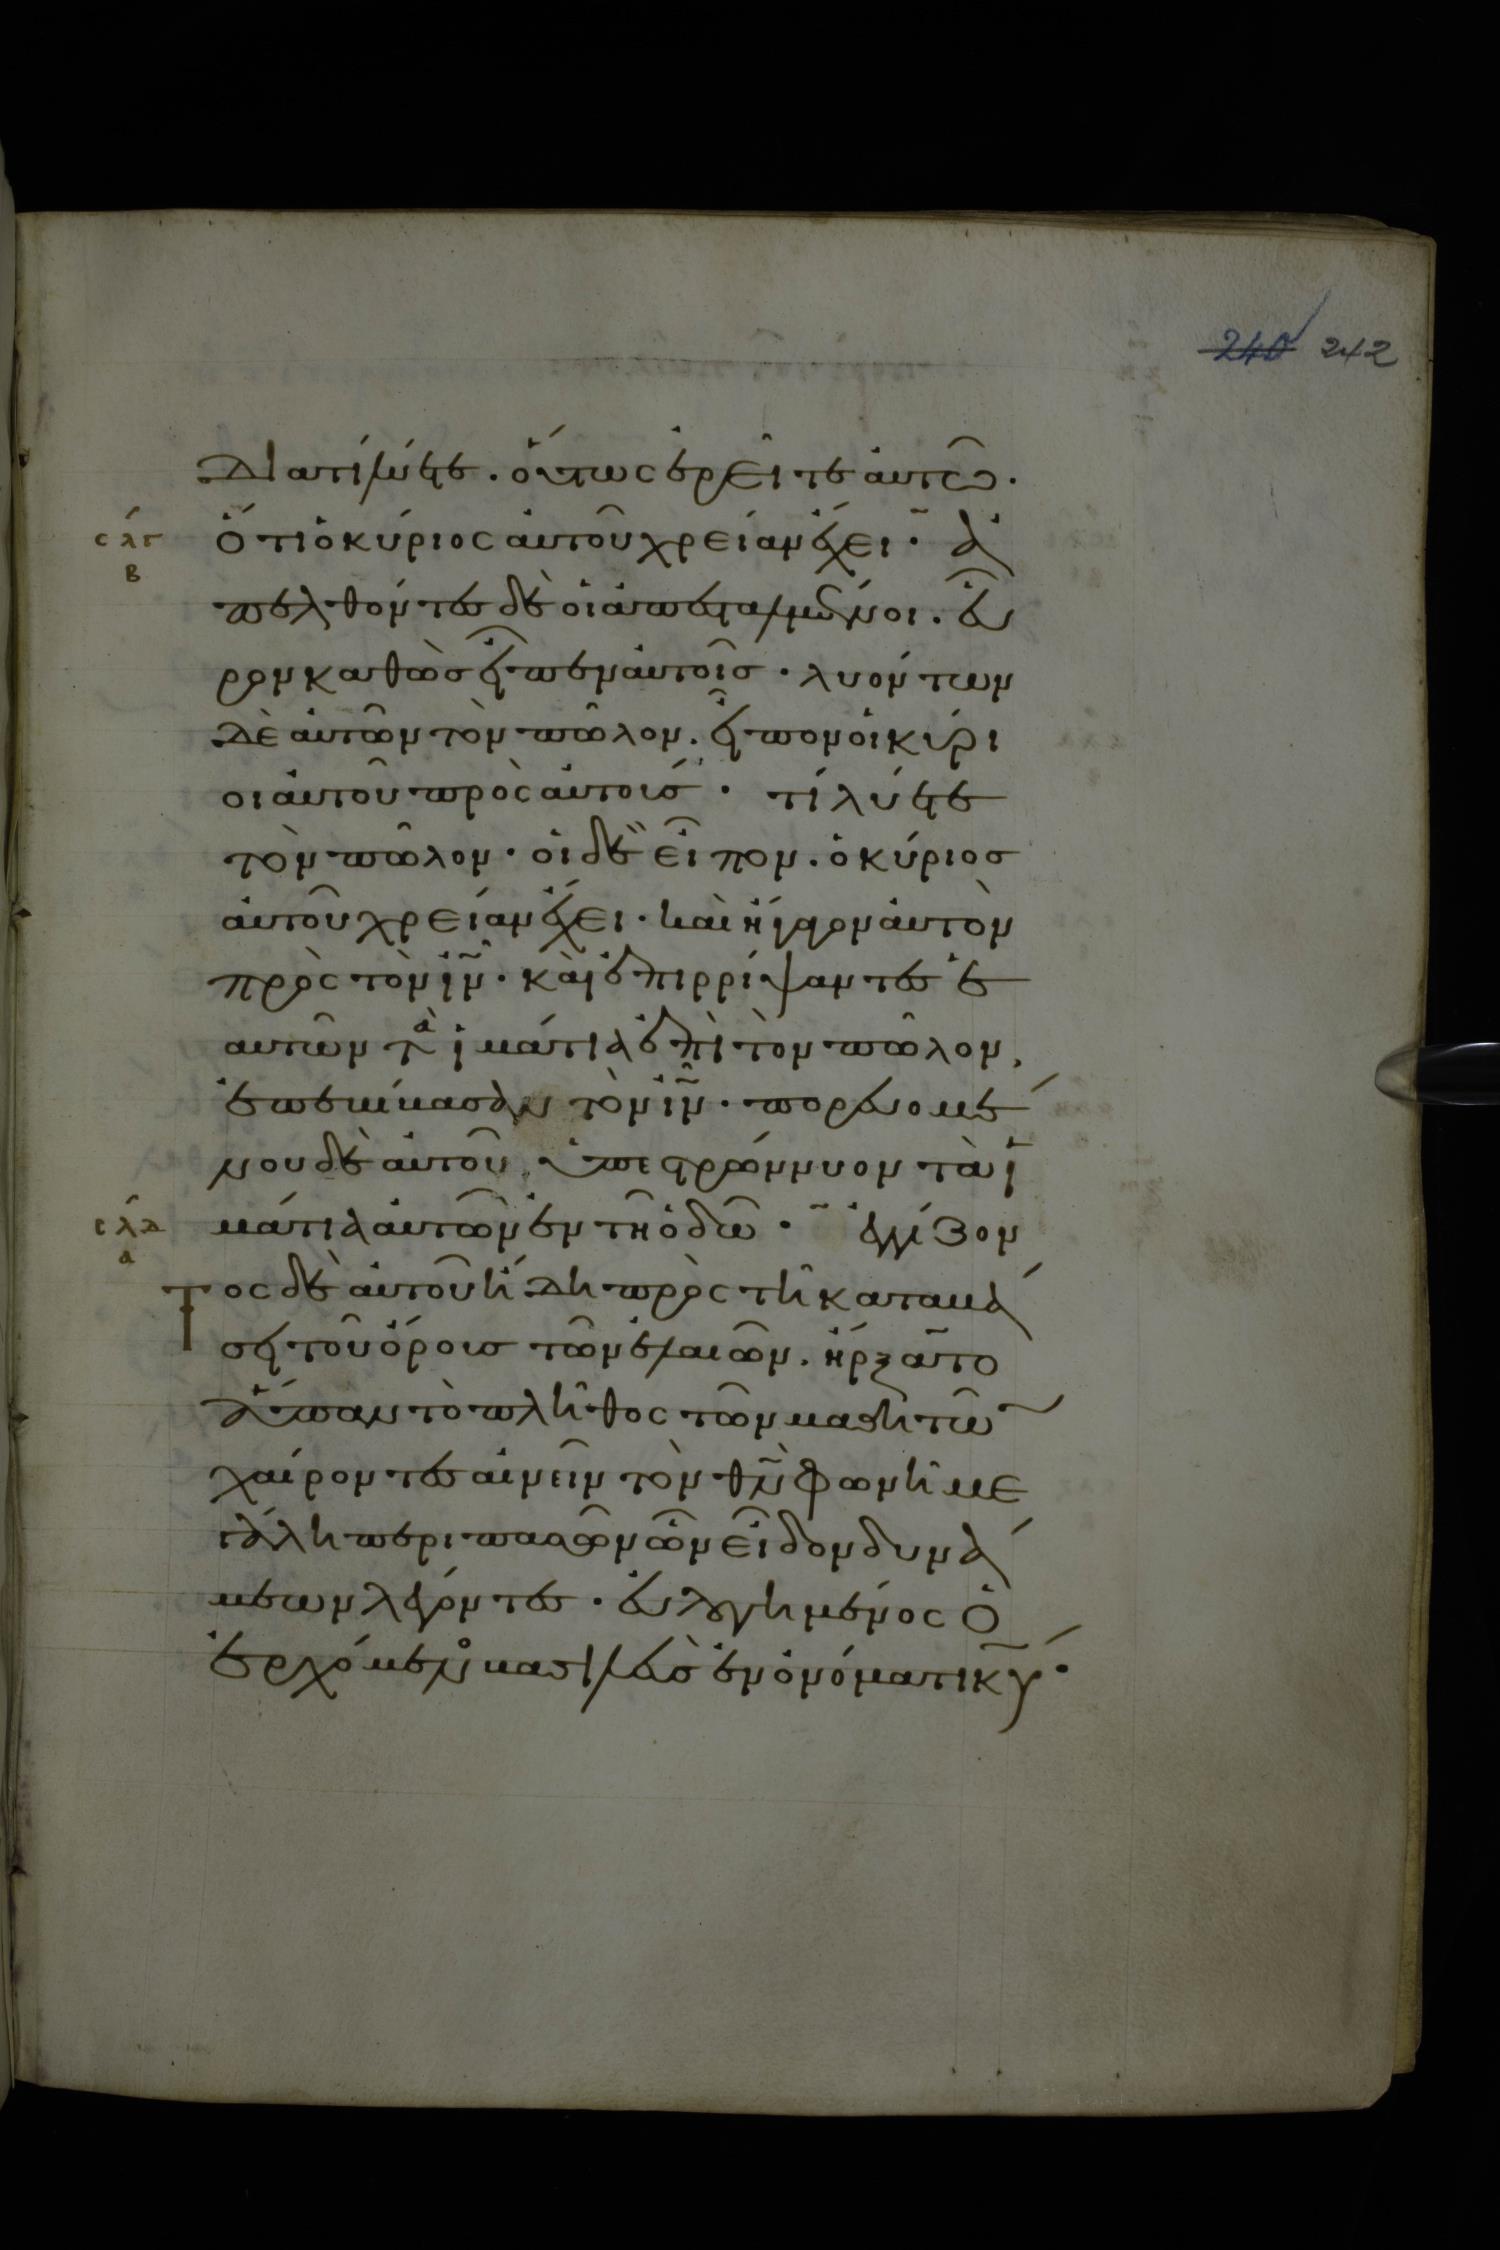 240 242
Διατί λύετε. ὅυτως ἐρεῖτε ἀυτῶ.
σλγ Ὅτι ὁ κύριος ἀυτοῦ χρείαν ἔχει. ἀ
β
πελθόντες δὲ οἱ ἀπεσταλμένοι. εὗ
ρον καθὼς εἶπεν ἀυτοῖς. λυόντων
δὲ ἀυτῶν τὸν πῶλον. εἶπον οἱ κύρι
οι ἀυτοῦ πρὸς ἀυτούς. τί λύετε
τὸν πῶλον. οἱ δὲ εἶπον. ὁ κύριος
ἀυτοῦ χρείαν ἔχει. καὶ ἤγαγον ἀυτὸν
πρὸς τὸν ἰν. καὶ ἐπιρρίψαντες ἑ
αυτῶν τὰ ἱμάτια ἐπὶ τὸν πῶλον,
ἐπεβίβασαν τὸν ἰν. πορευομέ
νου δὲ ἀυτοῦ, ὑπεστρώννυον τὰ ἱ
σλδ μάτια ἀυτῶν ἐν τῆ ὁδῶ. ἐγγίζον
α
τος δὲ ἀυτοῦ ἤδη πρὸς τῆ καταβά
σει τοῦ ὄρους τῶν ἐλαιῶν. ἤρξατο
ἅπαν τὸ πλῆθος τῶν μαθητῶ
χαίροντες αἰνεῖν τὸν θν φωνῆ με
γάλη περι πασῶν ὧν εἶδον δυνά
μεων λέγοντες. ἐυλογημένος ὁ
ἐρχόμενος βασιλεὺς ἐν ὀνόματι κυ.